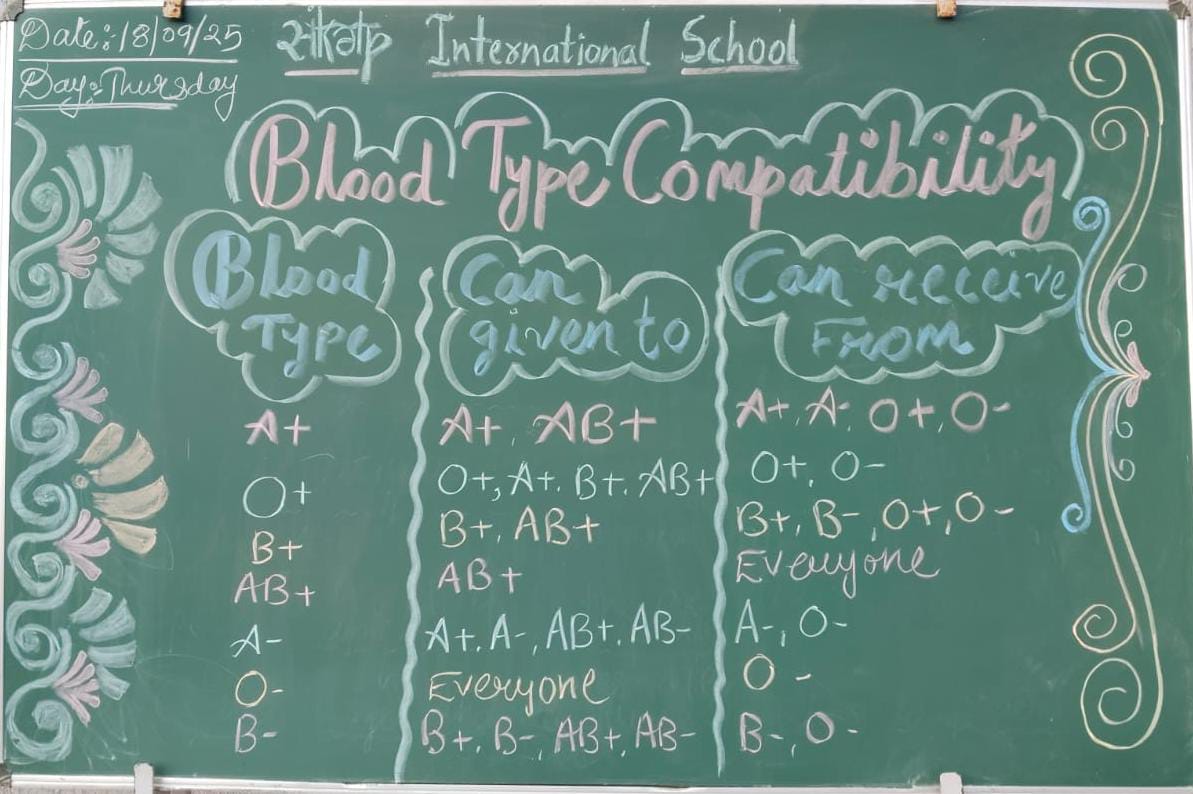 Date:-18/09/25
Day:-Thursday
संकल्प International School
Blood Type Compatibility
Blood Type
Can given to
Can receive From
A+ A+, AB+ A+, A-, O+, O-
O+ O+, A+, B+, AB+ O+, O-
B+ B+, AB+ B+, B-, O+, O-
AB+ AB+ Everyone
A- A+, A-, AB+, AB- A-, O-
O- Everyone O-
B- B+, B-, AB+, AB- B-, O-